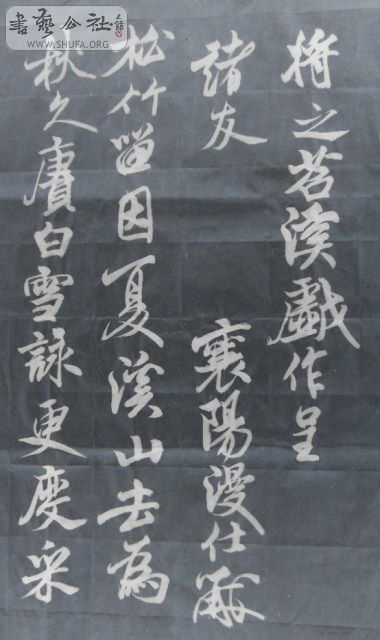 將之苕溪戲作呈
諸友 襄陽漫仕黻
松竹留因夏溪山去為
秋久賡白雪詠更度采
書藝公社
WWW.SHUFA.ORG